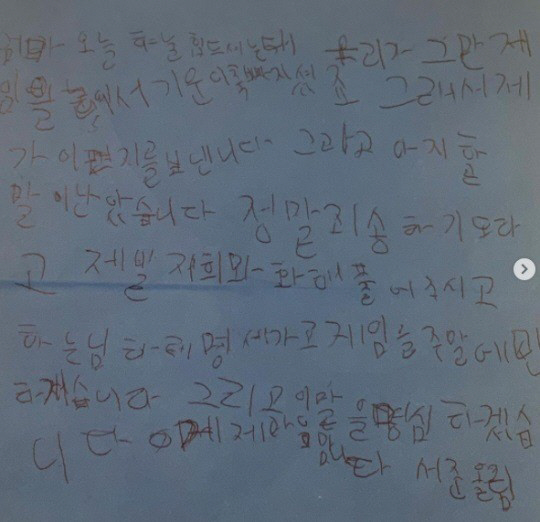 오늘 하는날 힘드셨는데 우리가 그만 게
임을 해서 기운이 쭉빠지셨죠 그래서 제
가 이편지를 보냄니다 그리고 아직 할
말이 남았습니다 정말 죄송하기도 하
고 제발 저희와 화해 풀어주시고
하는님 하테 명세하고 게임을 주말에만
하겠습니다 그리고 이말을 명심 하겠습
니다 이제 제 말 입니다 서준올림